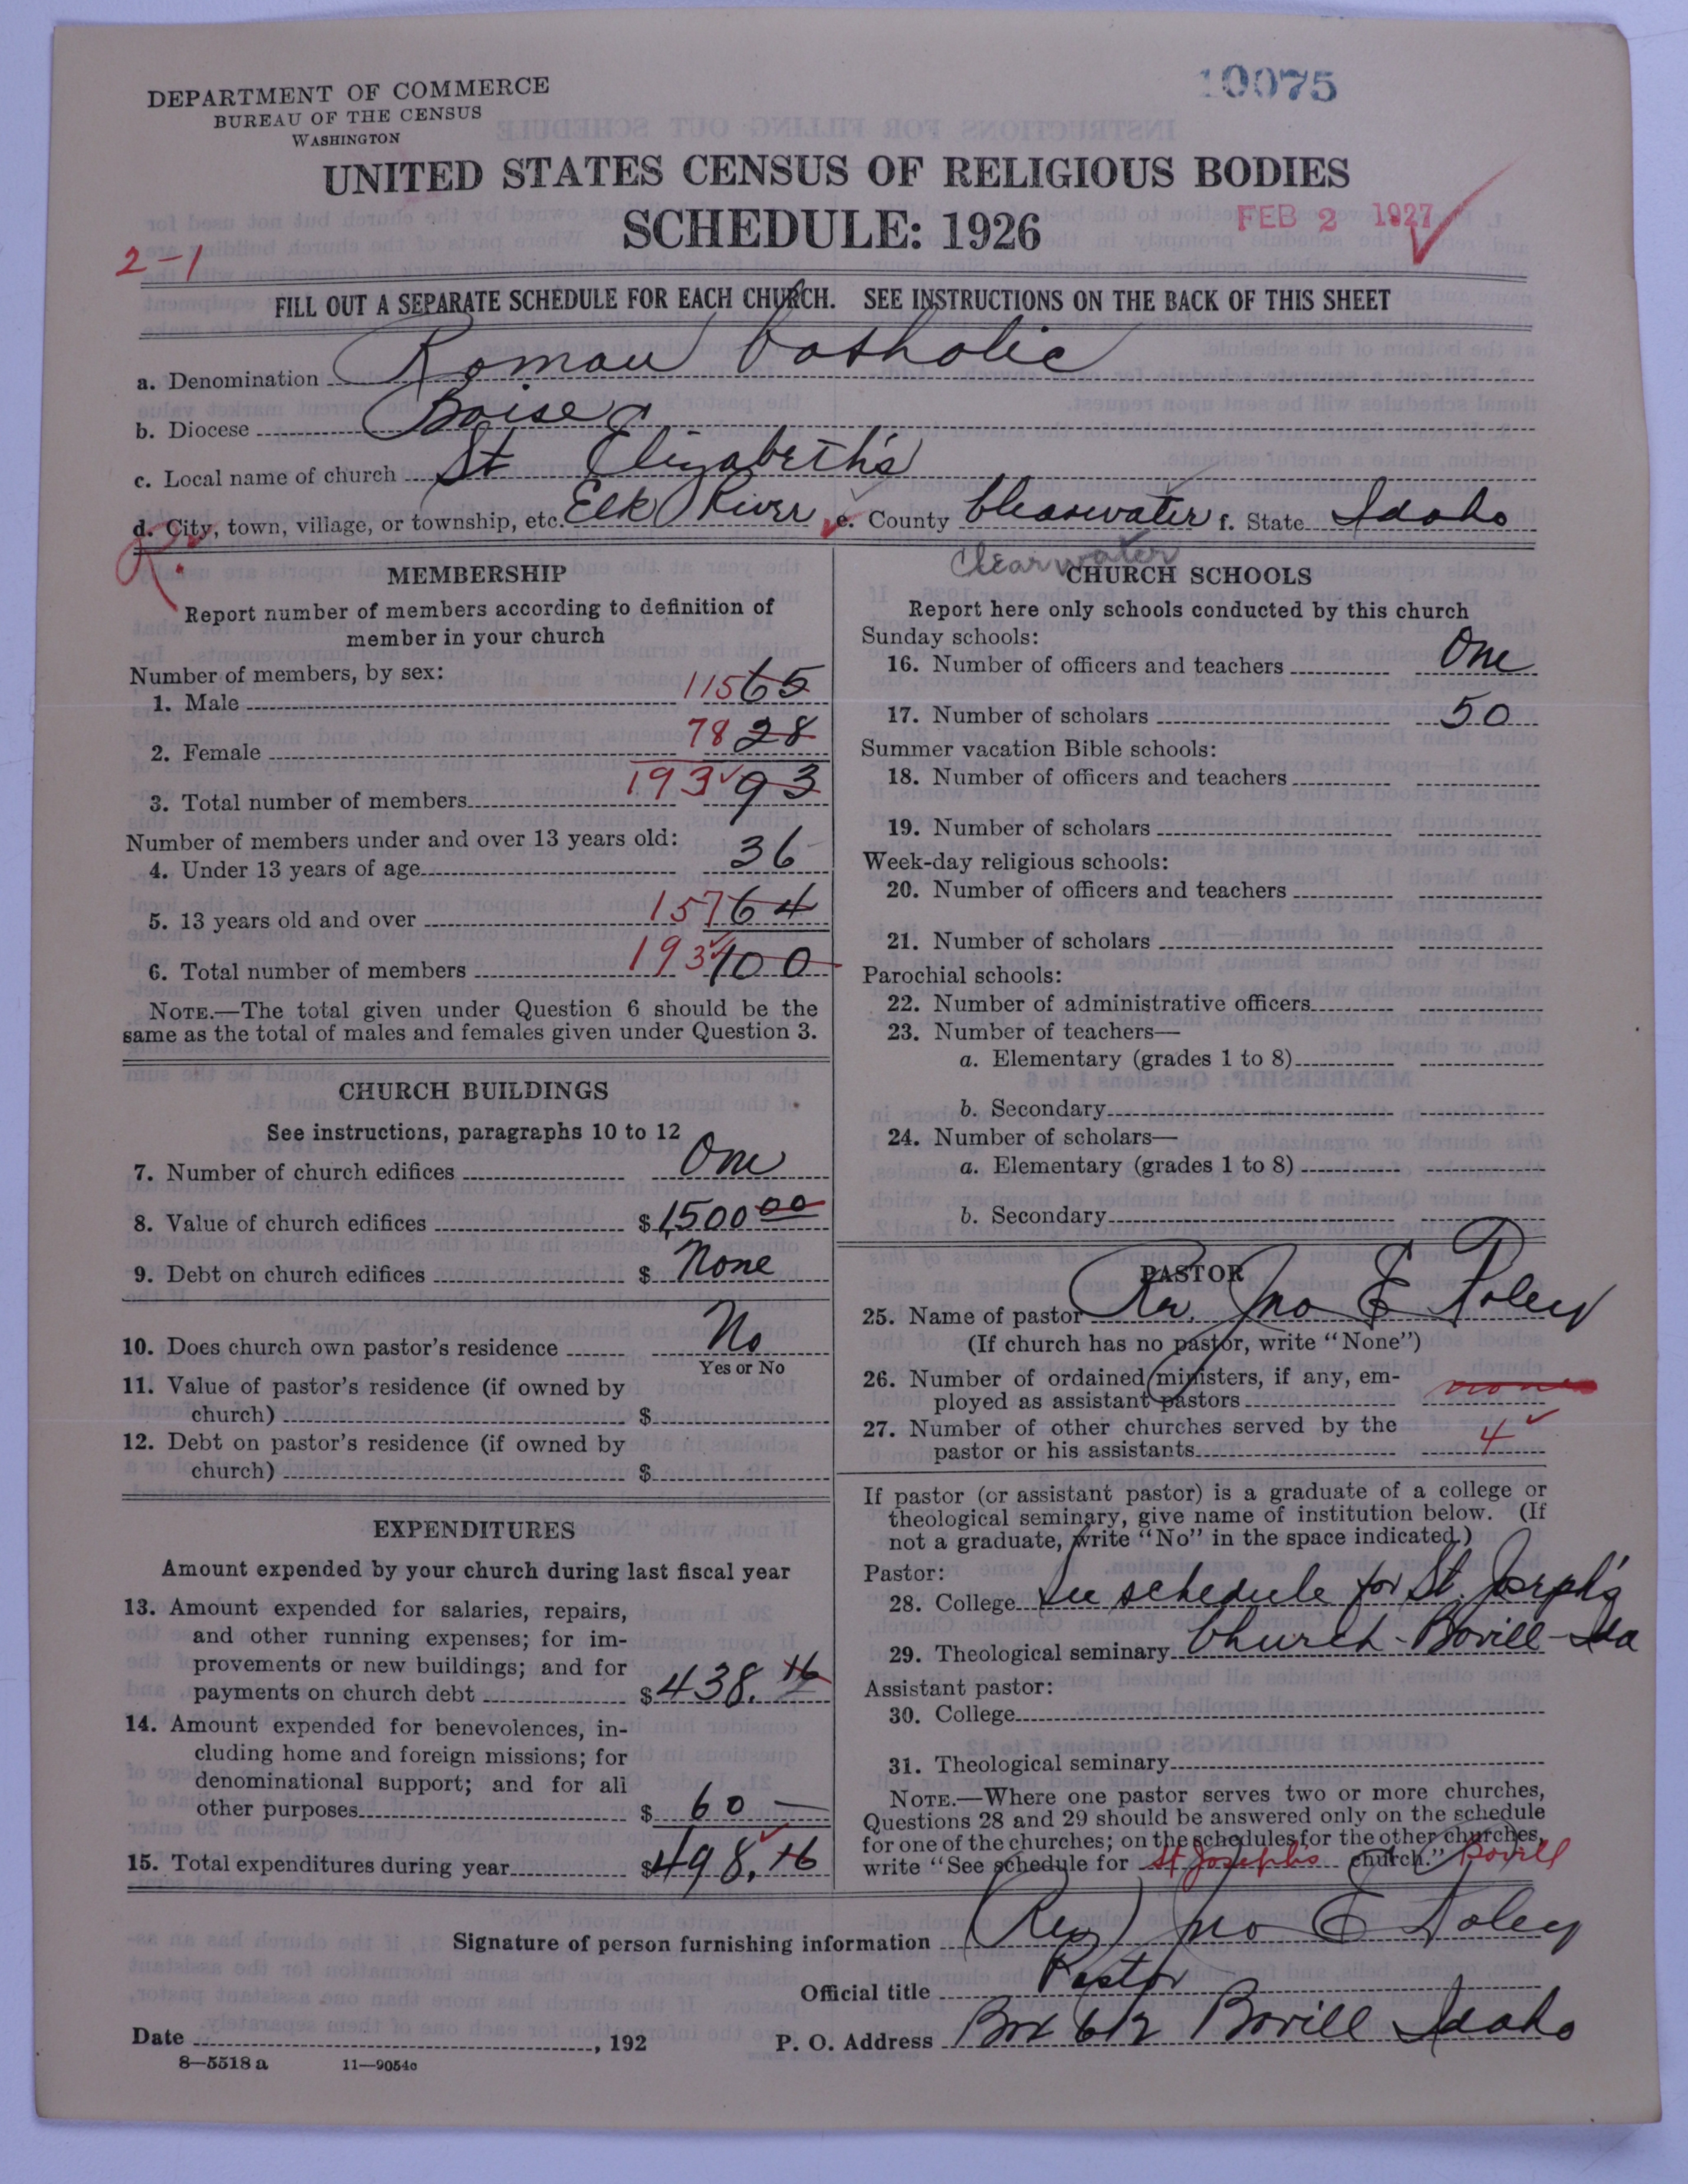 DEPARTMENT OF COMMERCE
BUREAU OF THE CENSUS
WASHINGTON
10075
UNITED STATES CENSUS OF RELIGIOUS BODIES
SCHEDULE: 1926
FEB 2 1927
2-1
FILL OUT A SEPARATE SCHEDULE FOR EACH CHURCH. SEE INSTRUCTIONS ON THE BACK OF THIS SHEET
a. Denomination Roman Catholic
b. Diocese Boise
c. Local name of church St Elizabeth's
d. City, town, village, or township, etc. Elk River e. County Clearwater f. State Idaho
R.
Clearwater
MEMBERSHIP
Report number of members according to definition of
member in your church
Number of members, by sex:
1. Male 115 65
2. Female 78 28
3. Total number of members 193 93
Number of members under and over 13 years old:
4. Under 13 years of age 36
5. 13 years old and over 157 64
6. Total number of members 193 100
NOTE.—The total given under Question 6 should be the
same as the total of males and females given under Question 3.
CHURCH BUILDINGS
See instructions, paragraphs 10 to 12
7. Number of church edifices One
8. Value of church edifices $1500 00
9. Debt on church edifices $ None
10. Does church own pastor's residence No
Yes or No
11. Value of pastor's residence (if owned by
church) $
12. Debt on pastor's residence (if owned by
church) $
EXPENDITURES
Amount expended by your church during last fiscal year
13. Amount expended for salaries, repairs,
and other running expenses; for im-
provements or new buildings; and for
payments on church debt $438. 16
14. Amount expended for benevolences, in-
cluding home and foreign missions; for
denominational support; and for all
other purposes $ 60 —
15. Total expenditures during year $498. 16
CHURCH SCHOOLS
Report here only schools conducted by this church
Sunday schools:
16. Number of officers and teachers One
17. Number of scholars 50
Summer vacation Bible schools:
18. Number of officers and teachers
19. Number of scholars
Week-day religious schools:
20. Number of officers and teachers
21. Number of scholars
Parochial schools:
22. Number of administrative officers
23. Number of teachers—
a. Elementary (grades 1 to 8)
b. Secondary
24. Number of scholars—
a. Elementary (grades 1 to 8)
b. Secondary
PASTOR
25. Name of pastor Rev. Jno E Foley
(If church has no pastor, write "None")
26. Number of ordained ministers, if any, em-
ployed as assistant pastors none
27. Number of other churches served by the
pastor or his assistants 4
If pastor (or assistant pastor) is a graduate of a college or
theological seminary, give name of institution below. (If
not a graduate, write "No" in the space indicated.)
Pastor:
28. College See schedule for St. Joseph's
29. Theological seminary Church - Bovill - Ida
Assistant pastor:
30. College
31. Theological seminary
NOTE.—Where one pastor serves two or more churches,
Questions 28 and 29 should be answered only on the schedule
for one of the churches; on the schedules for the other churches,
write "See schedule for St Josephs church." Bovill
Signature of person furnishing information (Rev) Jno E Foley
Official title Pastor
Date , 192
P. O. Address Box 612 Bovill Idaho
8—5518 a 11—9054c